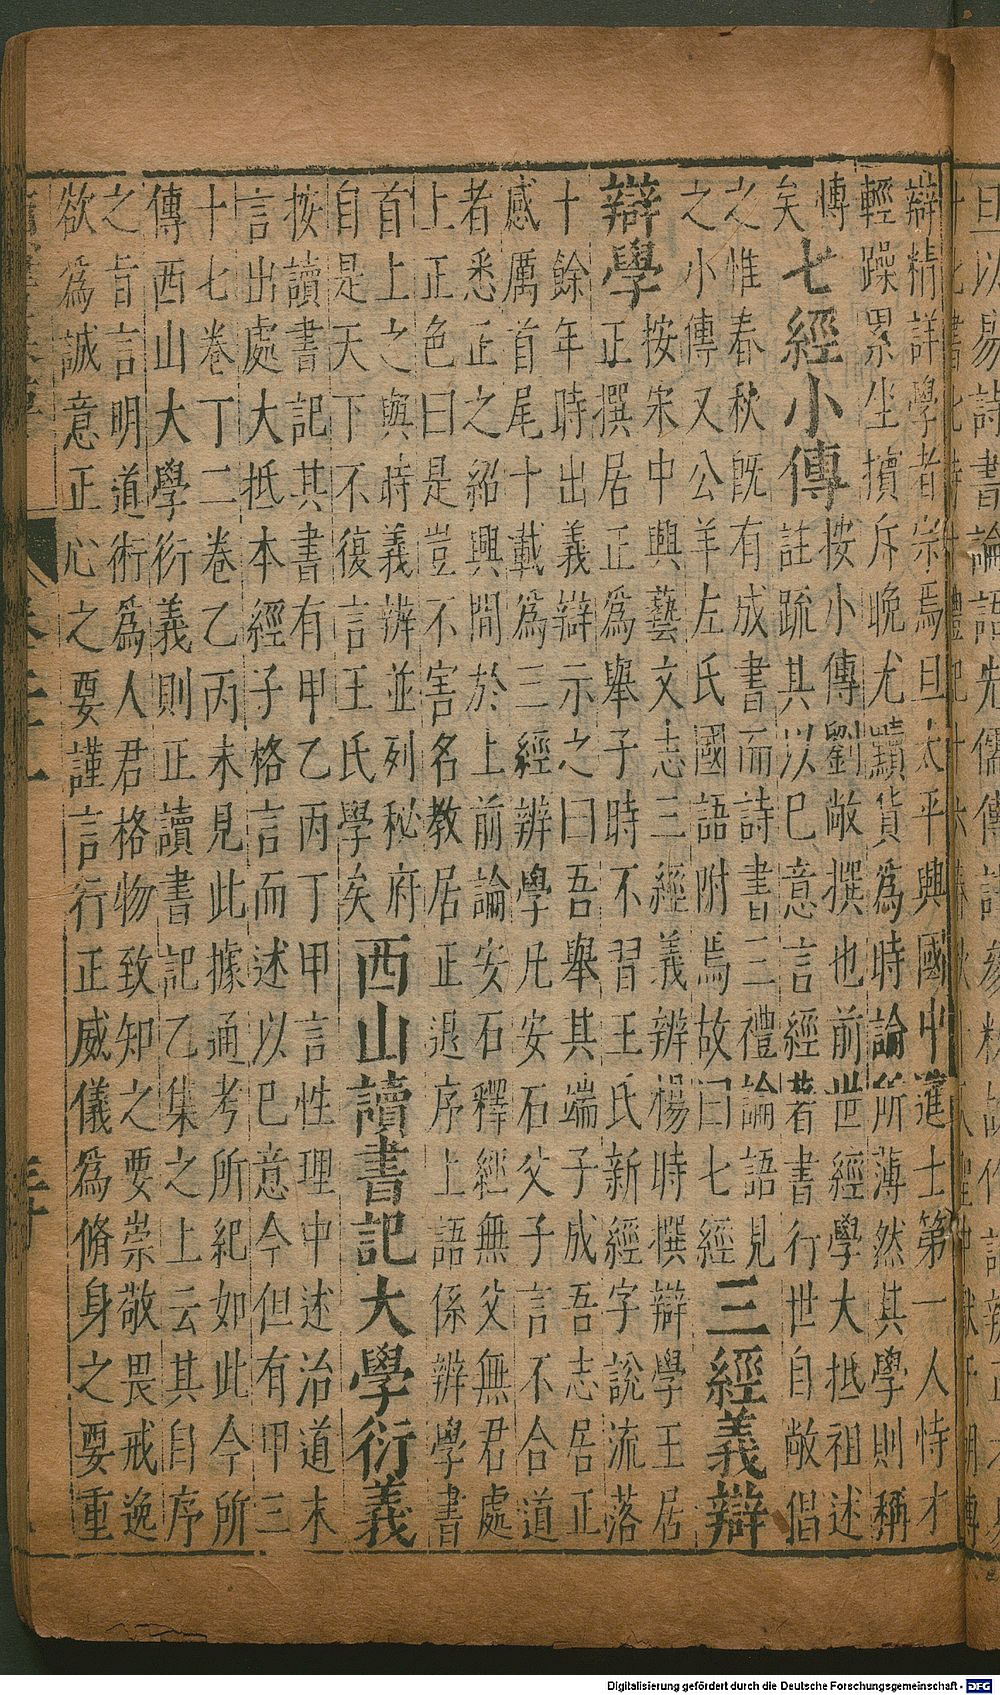 辯精詳學者宗焉且太平興國中進士第一人恃才
輕躁累坐擯斥晚尤黷貨為時論所薄然其學則稱
傳
矣
七經小傳
按小傳劉敞撰也前世經學大抵祖述
註疏其以已意言經著書行世自敞倡
之惟春秋既有成書而詩書三禮論語見
之小傳又公羊左氏國語附焉故曰七經
三經義辯
辯學
按宋中興藝文志三經義辨楊時撰辯學王居
正撰居正為舉子時不習王氏新經字說流落
十餘年時出義辯示之曰吾舉其端子成吾志居正
感厲首尾十載為三經辨學凡安石父子言不合道
者悉正之紹興間於上前論安石釋經無父無君處
上正色曰是豈不害名教居正退序上語係辨學書
首上之與時義辨並列秘府
自是天下不復言王氏學矣
西山讀書記大學衍義
按讀書記其書有甲乙丙丁甲言性理中述治道末
言出處大抵本經子格言而述以已意今但有甲三
十七卷丁二卷乙丙未見此據通考所紀如此今所
傳西山大學衍義則正讀書記乙集之上云其自序
之旨言明道術為人君格物致知之要崇敬畏戒逸
欲為誠意正心之要謹言行正威儀為脩身之要重
Digitalisierung gefördert durch die Deutsche Forschungsgemeinschaft - DFG